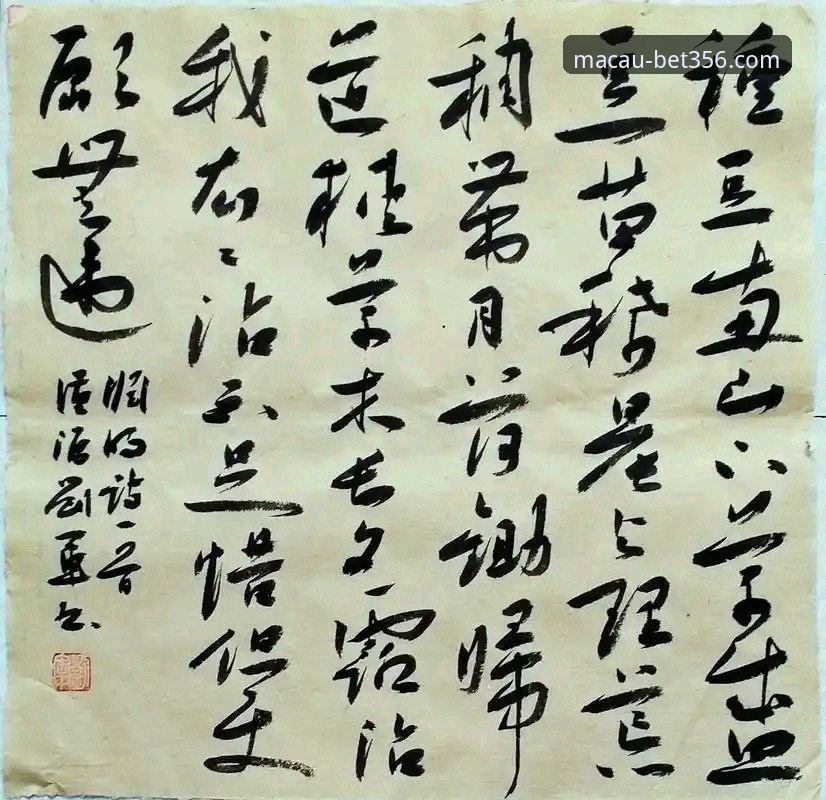 macau-bet356.com
種豆南山下草盛
豆苗稀晨興理荒
穢帶月荷鋤歸
道狹草木長夕露沾
我衣〻沾不足惜但使
願無違
淵明詩一首
劉軍书